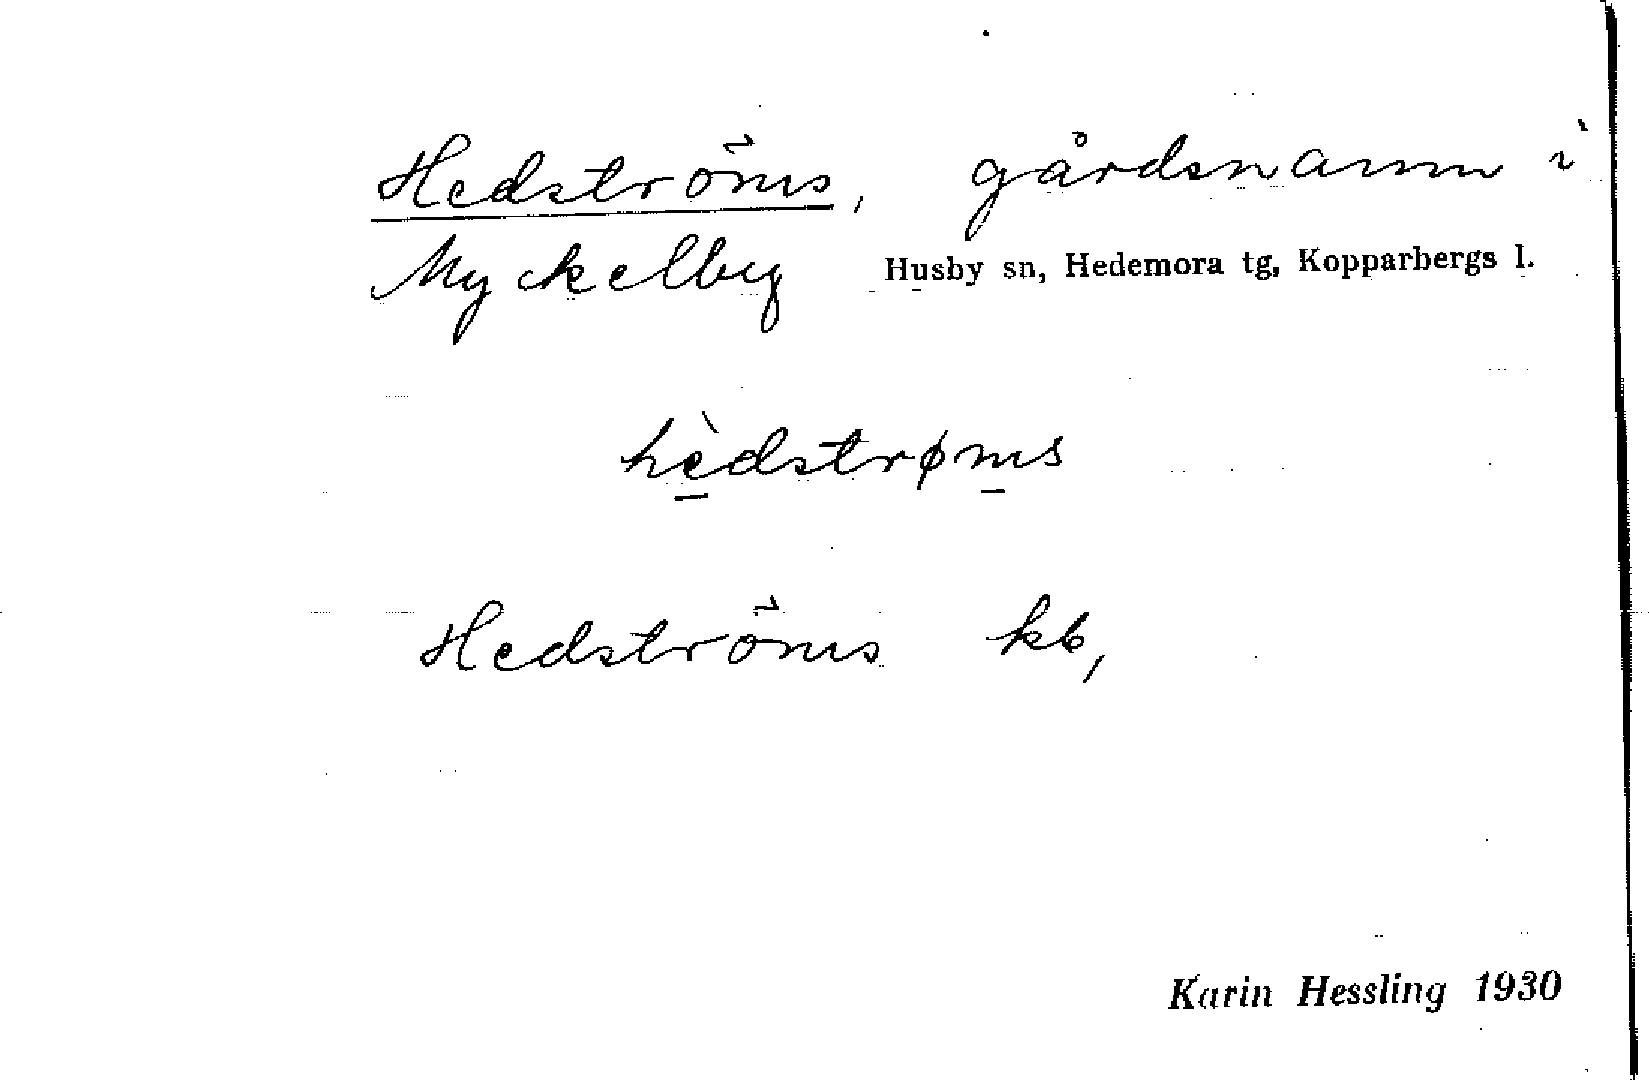 Hedströms, gårdsnamn i
Myckelby Husby sn, Hedemora tg, Kopparbergs l.
hèdstrøms
Hedströms kb,
Karin Hessling 1930